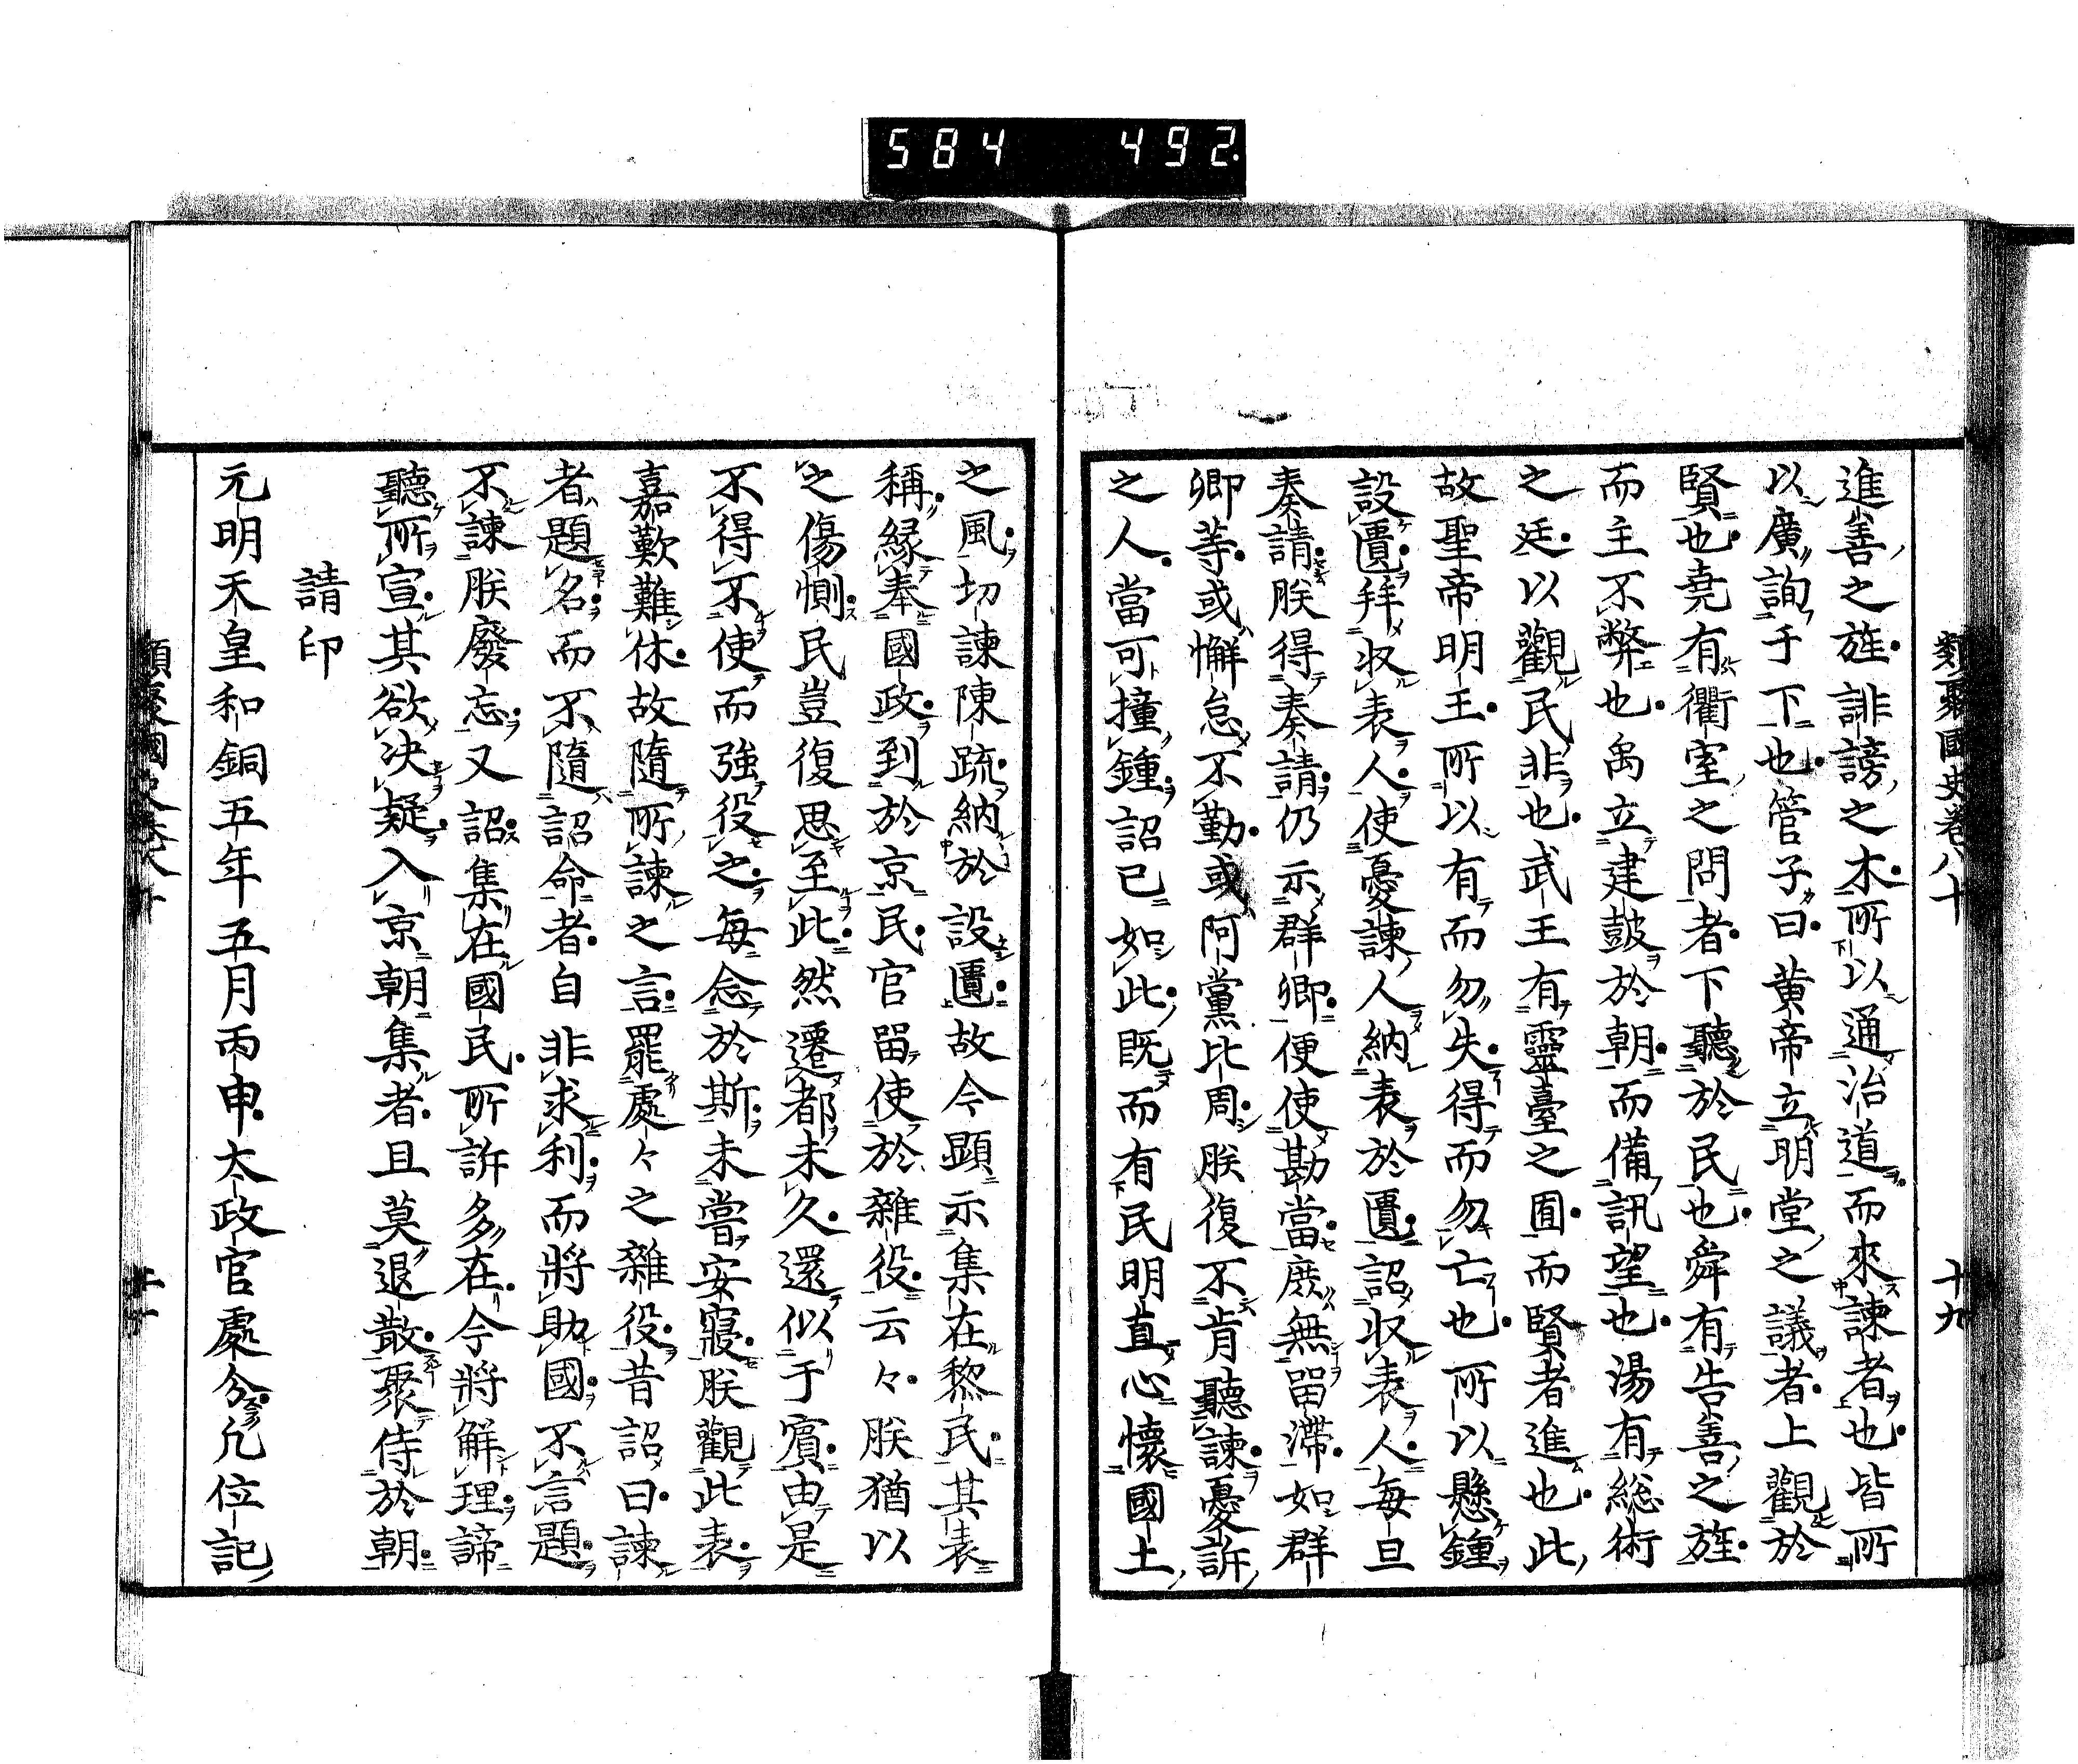 584 492.
類聚國史卷八十 十九
進善之旌誹謗之木所以通治道而來諫者也皆所
以廣詢于下也管子曰黄帝立明堂之議者上觀於
賢也堯有衢室之問者下聽於民也舜有告善之旌
而主不弊也禹立建鼓於朝而備訊望也湯有総術
之廷以觀民非也武王有靈臺之囿而賢者進也此
故聖帝明王所以有而勿失得而勿亡也所以懸鍾
設匱拜収表人使憂諫人納表於匱詔収表人每旦
奏請朕得奏請仍示群卿便使勘當庶無留滯如群
卿等或懈怠不勤或阿黨比周朕復不肯聽諫憂訴
之人當可撞鍾詔已如此既而有民明直心懷國土
之風切諫陳疏納於設匱故今顕示集在黎民其表
稱縁奉國政到於京民官留使於雜役云々朕猶以
之傷惻民豈復思至此然遷都未久還似于賓由是
不得不使而強役之每念於斯未嘗安寢朕觀此表
嘉歎難休故隨所諫之言罷處々之雜役昔詔曰諫
者題名而不隨詔命者自非求利而將助國不言題
不諫朕廢忘又詔集在國民所訴多在今將解理諦
聽所宣其欲决疑入京朝集者且莫退散聚侍於朝
請印
元明天皇和銅五年五月丙申太政官處分凡位記